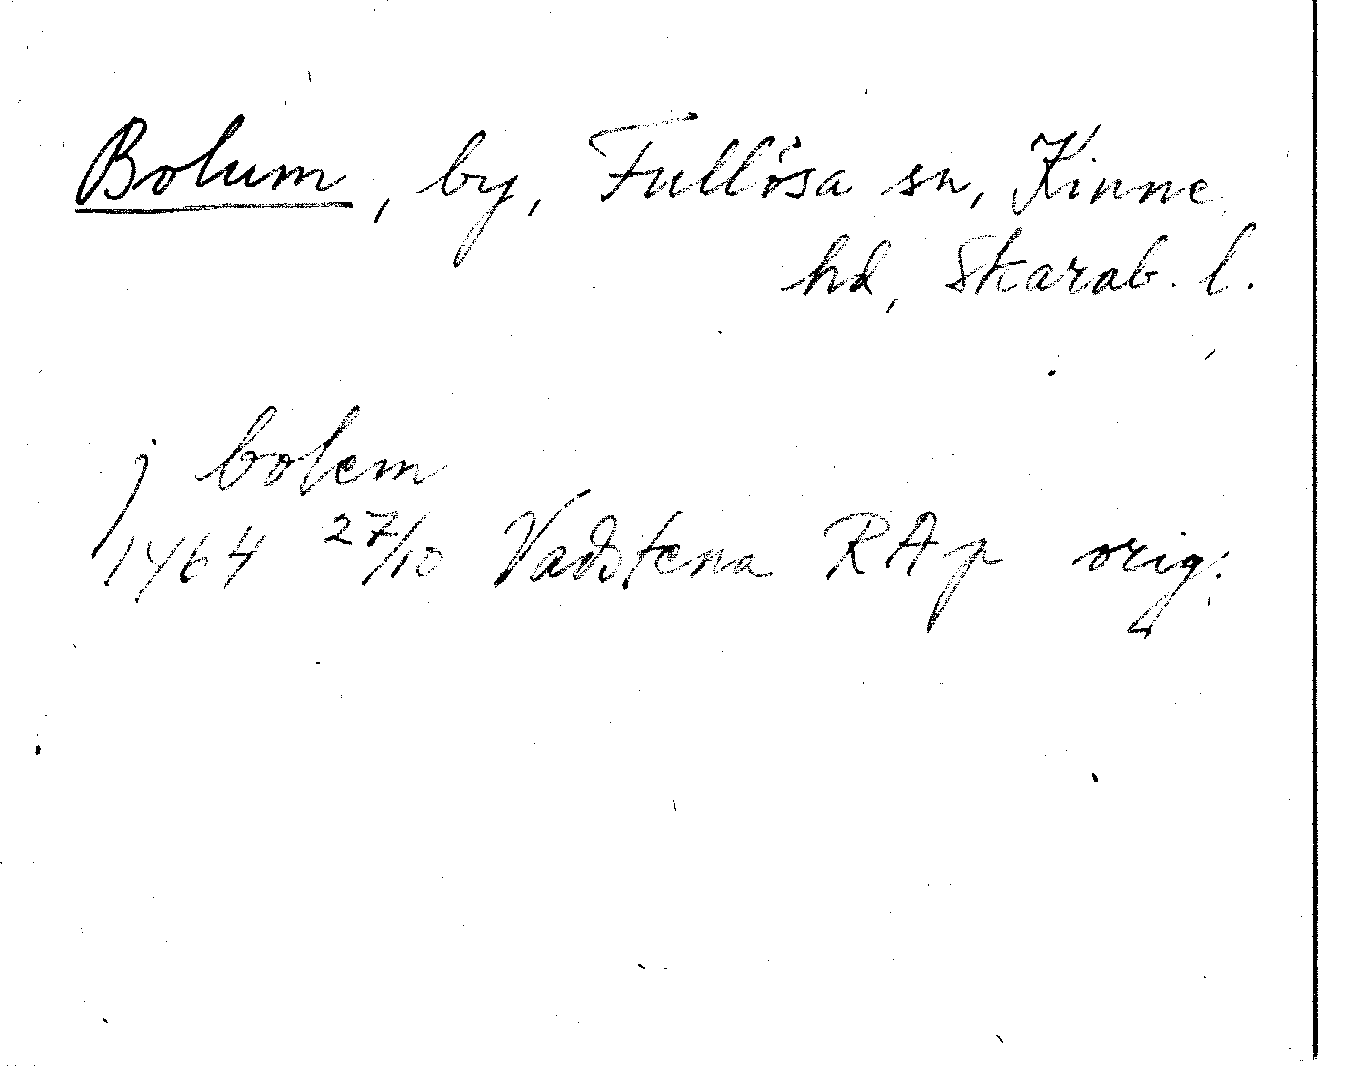 Bolum, by, Fullösa sn, Kinne
hd, Skarab. l.
j bolem
1464 27/10 Vadstena RAp orig.